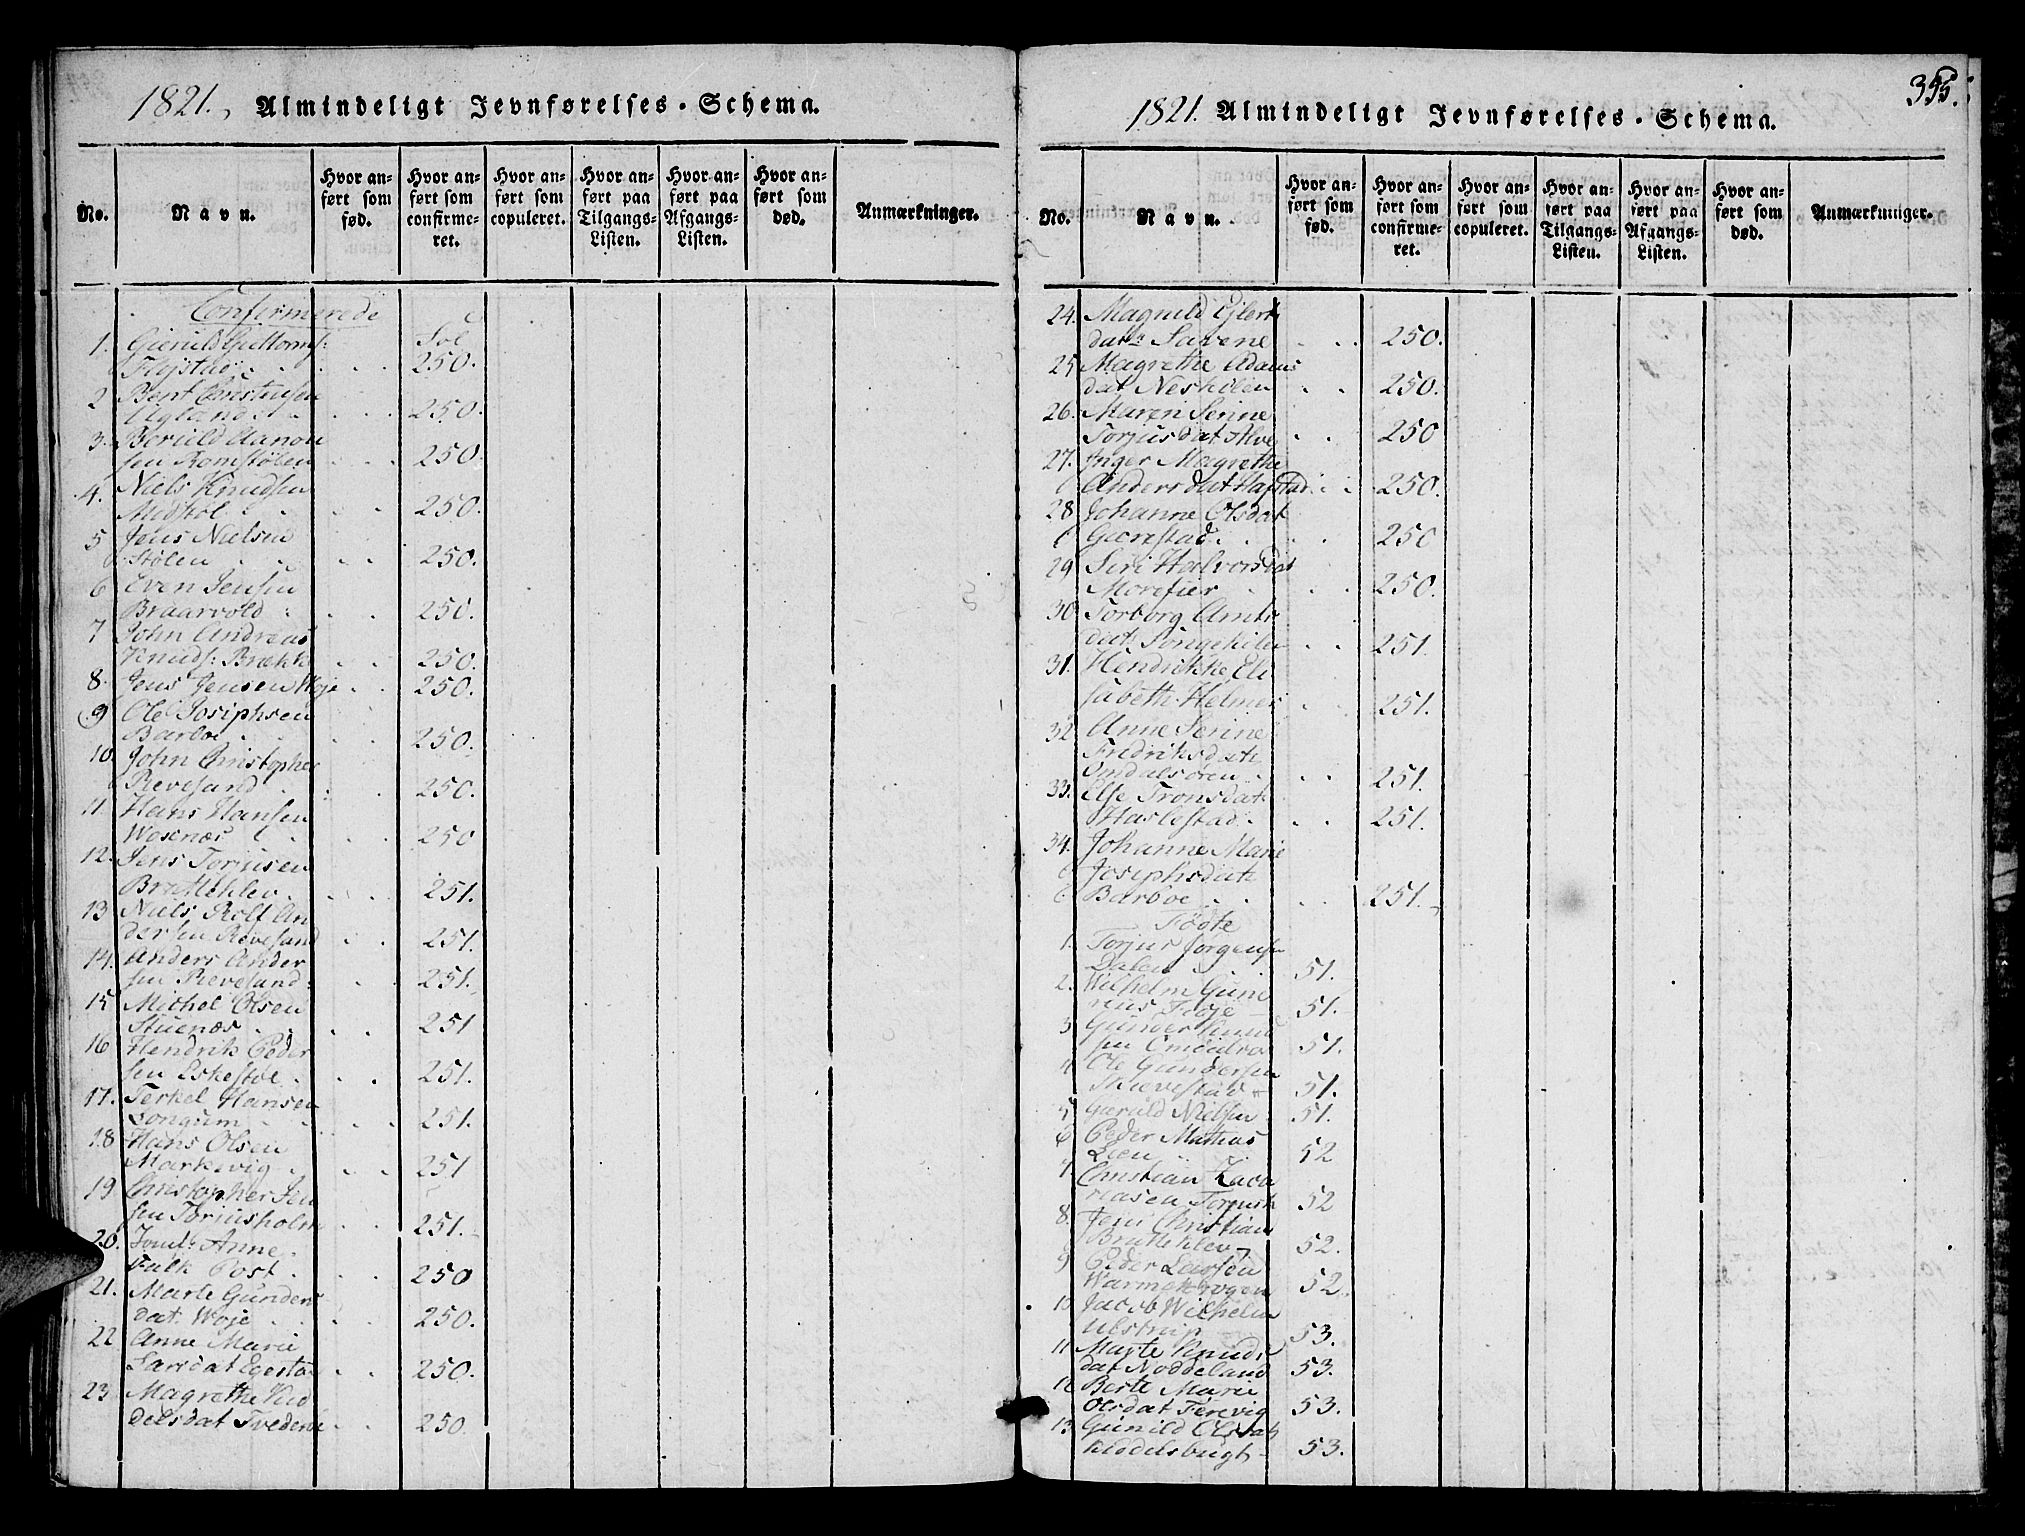 1821. Almindeligt Jevnførelses-Schema.
No.
Navn.
Hvor an-
ført som
fød.
Hvor an-
ført som
confirme-
ret.
Hvor an-
ført som
copuleret.
Hvor an-
ført paa
Tilgangs-
Listen.
Hvor an-
ført paa
Afgangs-
Listen.
Hvor an-
ført som
død.
Anmærkninger.
Confirmerede
1. Fol
250.
2 Bent Christensen
Ugland 250.
3.
sen Romstølen 250.
4. Niels Knudsen
Midstøl 250.
5 Jens Nielsen
Stølen 250.
6 Even Jensen
Braarvold 250.
7 John Andreas
Knuds: Brække 250.
8. Jens Jensen Woje 250.
9 Ole Josephsen
Barboe 250.
10. John Christopher
Revesand 250.
11. Hans Hansen
Wosenæs 250
12. Jens Torjusen
Bratteklev 251.
13 Niels Rolf An
dersen Revesand 251.
14. Anders Ander
sen Revesand 251.
15 Michel Olsen
Stuenæs 251
16 Hendrik Peder
sen Eskestøe 251.
17. Terkel Hansen
Longum 251.
18 Hans Olsen
Markevig 251
19 Christopher Jen
sen Torjusholm 251.
20. Anne
Falk Post 250
21. Marte Gunders
dat. Woje 250.
22 Anne Marie
Larsdat Egesta 250.
23 Magrethe
delsdat Tvedene 250.
1821. Almindeligt Jevnførelses-Schema.
355.
No.
Navn.
Hvor an-
ført som
fød.
Hvor an-
ført som
confirme-
ret.
Hvor an-
ført som
copuleret.
Hvor an-
ført paa
Tilgangs-
Listen.
Hvor an-
ført paa
Afgangs-
Listen.
Hvor an-
ført som
død.
Anmærkninger.
24. Magnild
Savene 250.
25 Magrethe Adams
dat Neskilen 250.
26. Maren Serine
Torjusdat Alve 250
27. Inger Magrethe
Andersdat Hafstad 250.
28 Johanne Olsdat
Gærestad 250
29 Siri Halvorsdat
Morefier 250.
30 Torborg
dat: Songekilen 251.
31. Hendrikke Eli
sabeth Helmer 251.
32 Anne Serine
Fredriksdat
Omdalsøren 251.
33. Else Tronsdat
Haslestad 251.
34. Johanne Marie
Josephsdat
Barboe 251.
Fødte
1. Torjus Jørgensen
Dalen 51.
2. Wilhelm Gune
rius 51.
3 Gunder Knud
sen 51.
4 Ole Gundersen
Skievestad 51.
5 Nielsen 51.
6 Peder Mathias
Lien 52
7. Christian Zaca
riasen 52
8. Jens Christian
Bratteklev 52.
9 Peder Larsen
Warmekrogen 52.
10 Jacob Wilhelm
Ulstrup 53.
11 Marte Knuds
dat Noddeland 53.
12 Berte Marie
Olsdat Terevig 53.
13. Gunild Olsdat
Kiddelsbugt 53.